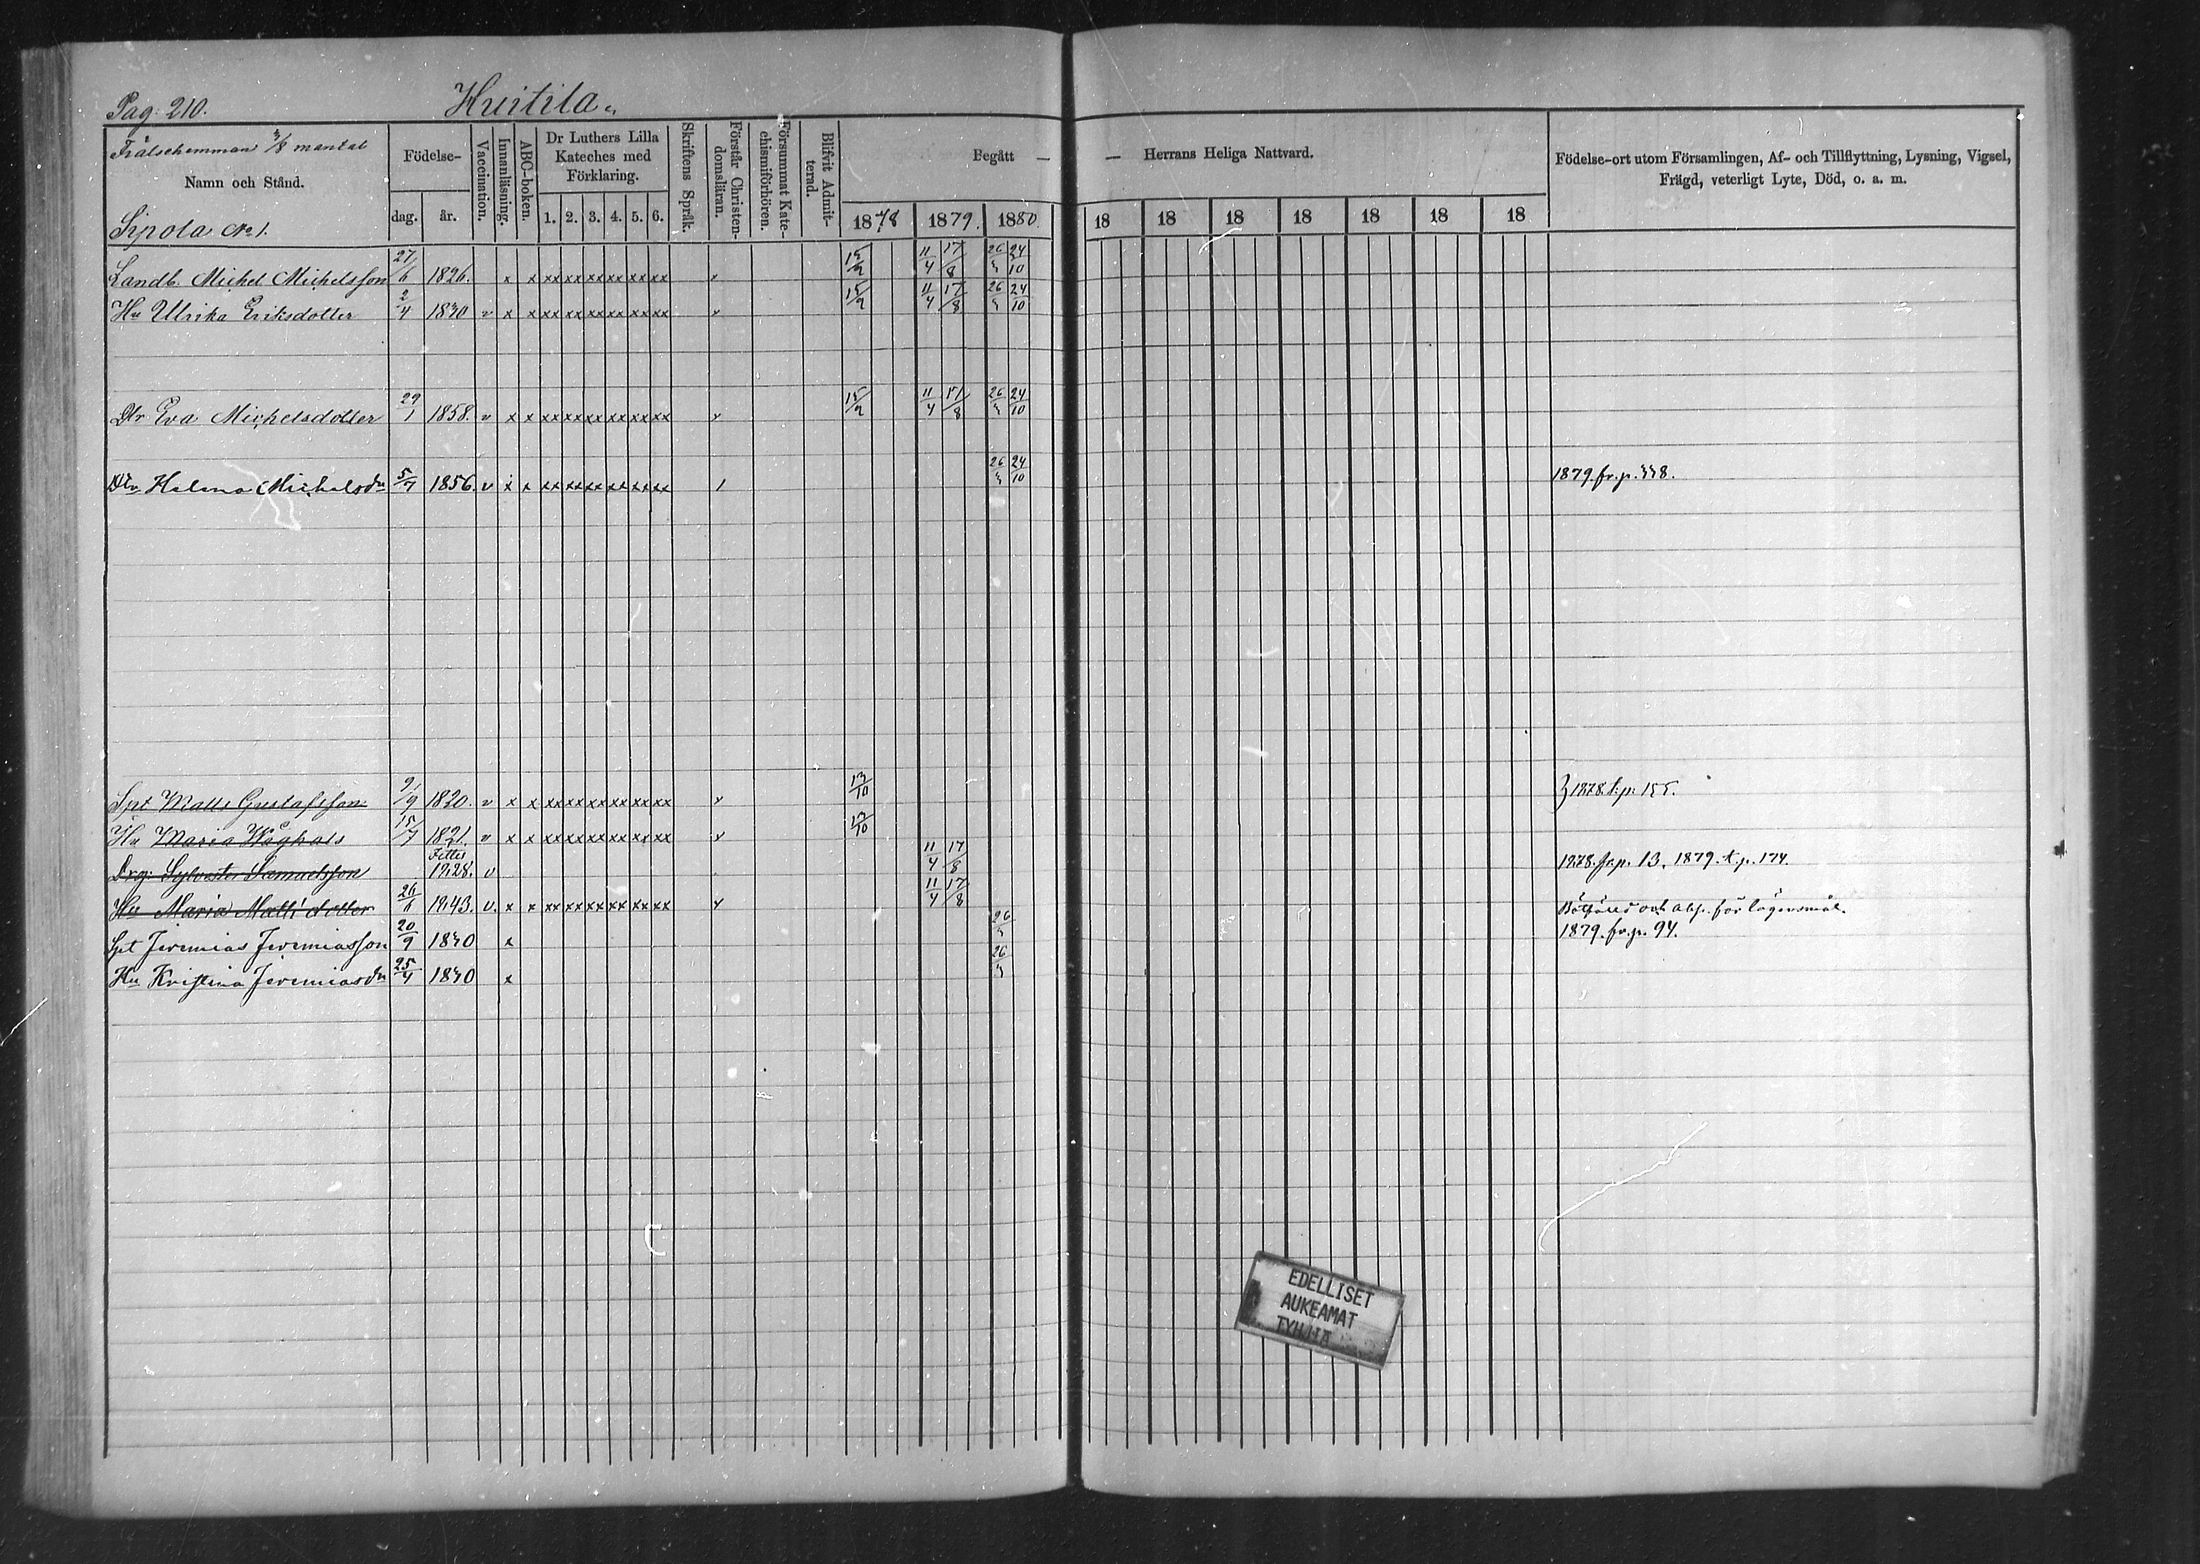 Pag: 210. Huitila.
Frälsehemman 3/8 mantal
Namn och Stånd.
Sipola No 1.
Födelse-
dag. år.
Vaccination.
Innanläsning.
ABC-boken.
Dr Luthers Lilla
Kateches med
Förklaring.
1. 2. 3. 4. 5. 6.
Skriftens Språk.
Förstår Christen-
domsläran.
Försummat Kate-
chismiförhören.
Blifvit Admit-
terad.
Begått — — Herrans Heliga Nattvard.
1878 1879. 1880. 18 18 18 18 18 18 18
Födelse-ort utom Församlingen, Af- och Tillflyttning, Lysning, Vigsel,
Frägd, veterligt Lyte, Död, o. a. m.
Landb. Michel Michelsson 27/6 1826. x x xx xx xx xx xx xx x 11/4 17/8 26/3 24/10
Hu Ulrika Eriksdotter 2/4 1830 v x x xx xx xx xx xx xx x 11/4 17/8 26/3 24/10
Dtr Eva Michelsdotter 29/1 1858. v x x xx xx xx xx xx xx x 11/4 26/3 24/10
Dtr Helena Michelsdr 5/7 1856. v x x xx xx xx xx xx xx / 26/3 24/10 1879. fr. p. 338.
Spt Matts Gustafsson 9/9 1820. v x x xx xx xx xx xx xx x 13/10 1878. t. p. 155.
Hu Maria Wåghals 15/7 1821. v x x xx xx xx xx xx xx x 13/10
Drg: Sylvester Samuelsson 1828. v 11/4 17/8 1878. fr. p. 13, 1879. t. p. 174.
Hu Maria Matts dotter 26/6 1843. v. x x xx xx xx xx xx xx x 11/4 17/8 och abs. för lägersmål.
Spt Jeremias Jeremiasson 20/9 1830 x 26/3 1879. fr. p. 94.
Hu Kristina Jeremiasdr 25/4 1830 x 26/3
EDELLISET
AUKEAMAT
TYHJIÄ